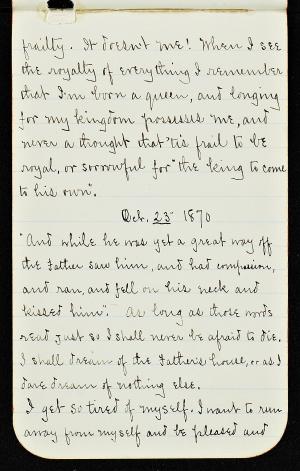 frailty. It doesn't me! When I see
the royalty of everything I remember
that I'm born a queen, and longing
for my kingdom possesses me, and
never a thought that 'tis frail to be
royal, or sorrowful for "the king to come
to his own".
Oct. 23 1870
"And while he was yet a great way off
the Father saw him, and had compassion,
and ran, and fell on his neck and
kissed him". As long as those words
read just so I shall never be afraid to die.
I shall dream of the Father's house, or as I
dare dream of nothing else.
I get so tired of myself. I want to run
away from myself and be pleased and